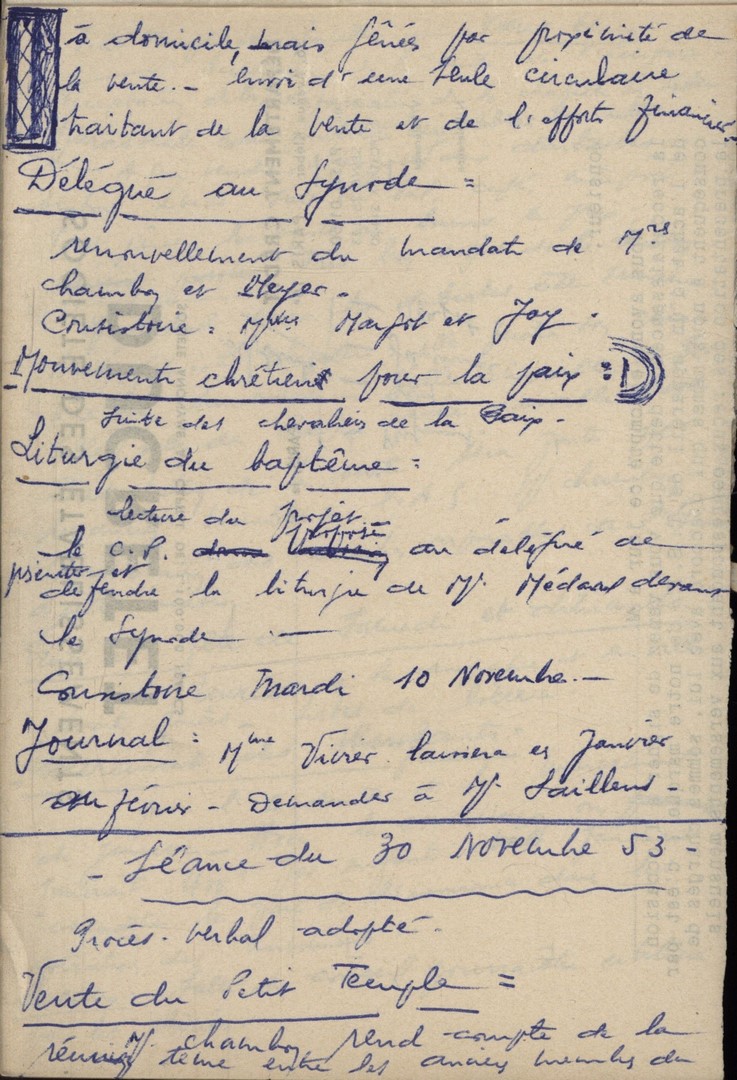 à domicile, mais gênées par proximité de
la vente. - Envoi d'une seule circulaire
traitant de la vente et de l'effort financier.
Délégué au Synode =
renouvellement du mandat de Mrs
chambon et Meyer.
Consistoire : Mmes Margot et Joy.
Mouvement chrétien pour la paix :
suite des chevaliers de la Paix.
Liturgie du baptême =
lecture du projet
le C.P. propose au délégué de
présenter et
défendre la liturgie de Mr Médard devant
le Synode. -
Consistoire Mardi 10 Novembre. -
Journal : Mme Vivier laissera es Janvier
ou février - Demander à Mr Saillens -
- Séance du 30 Novembre 53 -
Procès-verbal adopté.
Vente du Petit Temple =
Mr chambon rend compte de la
réunion tenue entre les anciens membres du